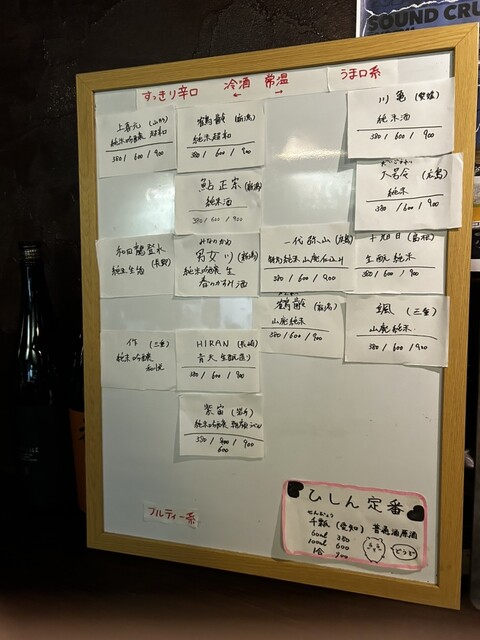 SOUND CRU
すっきり辛口 冷酒 常温 うま口系
← →
上喜元 (山形)
純米吟醸 超辛
380 / 600 / 900
鶴齢 (新潟)
純米超辛
380 / 600 / 900
川亀 (愛媛)
純米酒
380 / 600 / 900
鮎正宗 (新潟)
純米酒
380 / 600 / 900
(広島)
純米
380 / 600 / 900
和田龍登水
純米生酒 (長野)
みなのがわ
男女川
純米吟醸 生
春のかすみ酒
一代弥山 (広島)
特別純米 山廃仕込み
380 / 600 / 900
十旭日 (島根)
生酛純米
380 / 600 / 900
鶴齢 (新潟)
山廃純米
380 / 600 / 900
颯 (三重)
山廃純米
380 / 600 / 900
作 (三重)
純米吟醸
HIRAN (長崎)
生酛造り
380 / 600 / 900
紫宙 (岩手)
純米吟醸
600
フルティー系
ひしん 定番
千瓢 (愛知) 普通酒原酒
60ml 380
100ml 600
1合 900
どうぞ